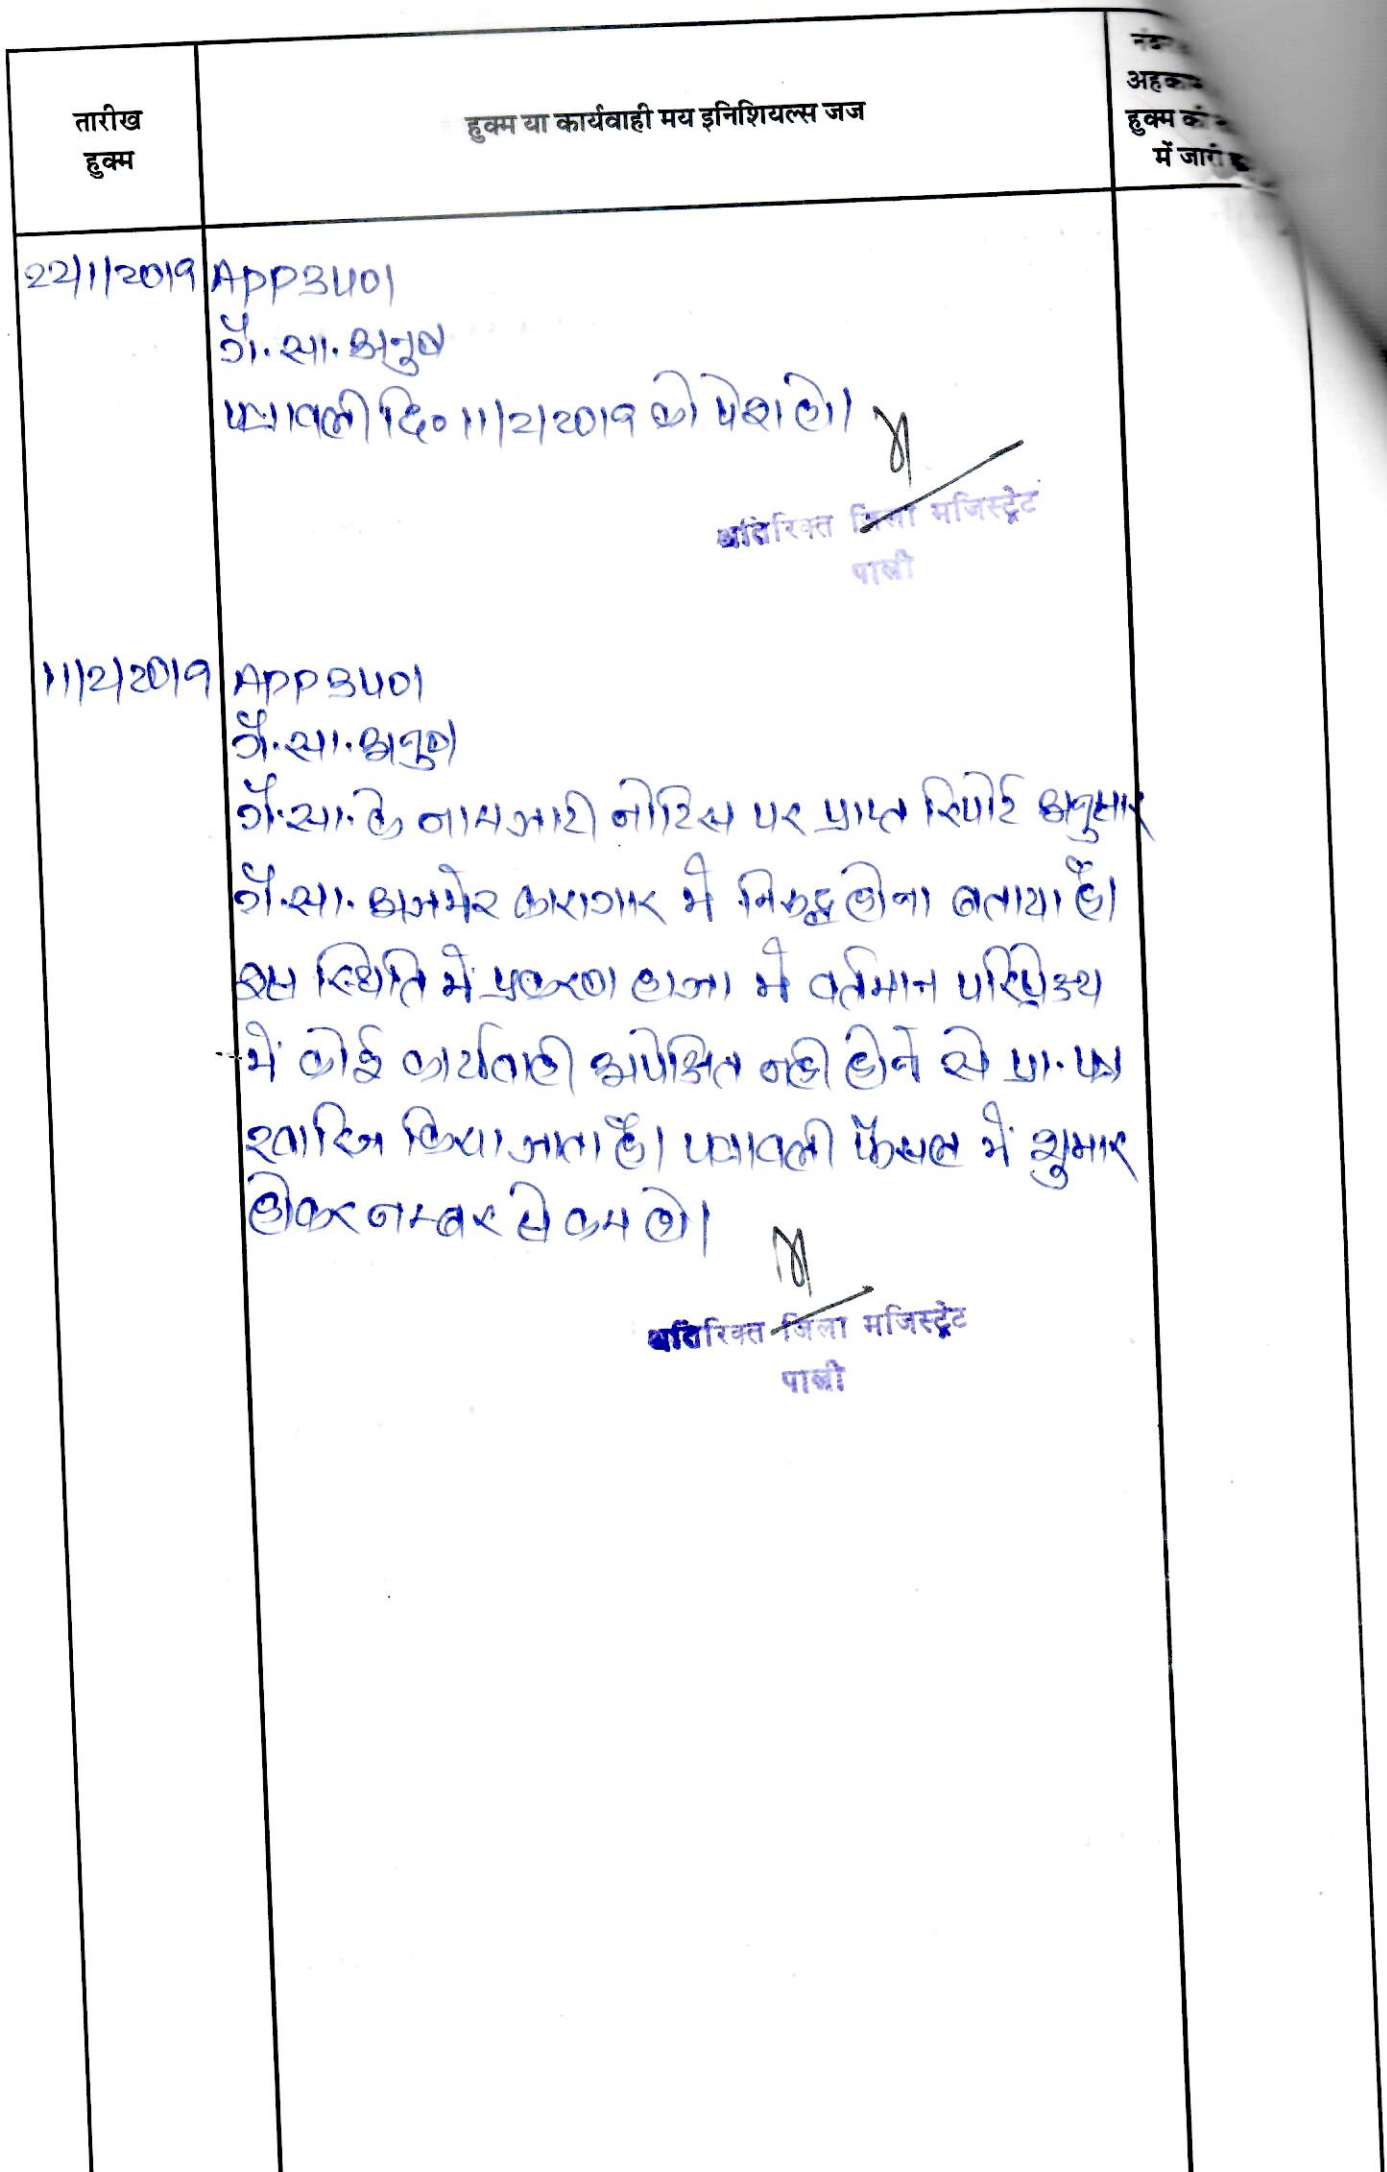 तारीख
हुक्म
हुक्म या कार्यवाही मय इनिशियल्स जज
अहकाम
हुक्म की
में जारी
22/1/2019 APP उप०।
गै.सा. अनुप
पत्रावली दि० 11/2/2019 को पेश हो।
अतिरिक्त जिला मजिस्ट्रेट
पाली
11/2/2019 APP उप०।
गै.सा. अनुप
गै.सा. के नाम जारी नोटिस पर प्राप्त रिपोर्ट अनुसार
गै.सा. अजमेर कारागार में निरूद्ध होना बताया है।
इस स्थिति में प्रकरण हाजा में वर्तमान परिप्रेक्ष्य
में कोई कार्यवाही अपेक्षित नही होने से प्रा. पत्र
खारिज किया जाता है। पत्रावली फैसल में शुमार
होकर नम्बर से कम हो।
अतिरिक्त जिला मजिस्ट्रेट
पाली